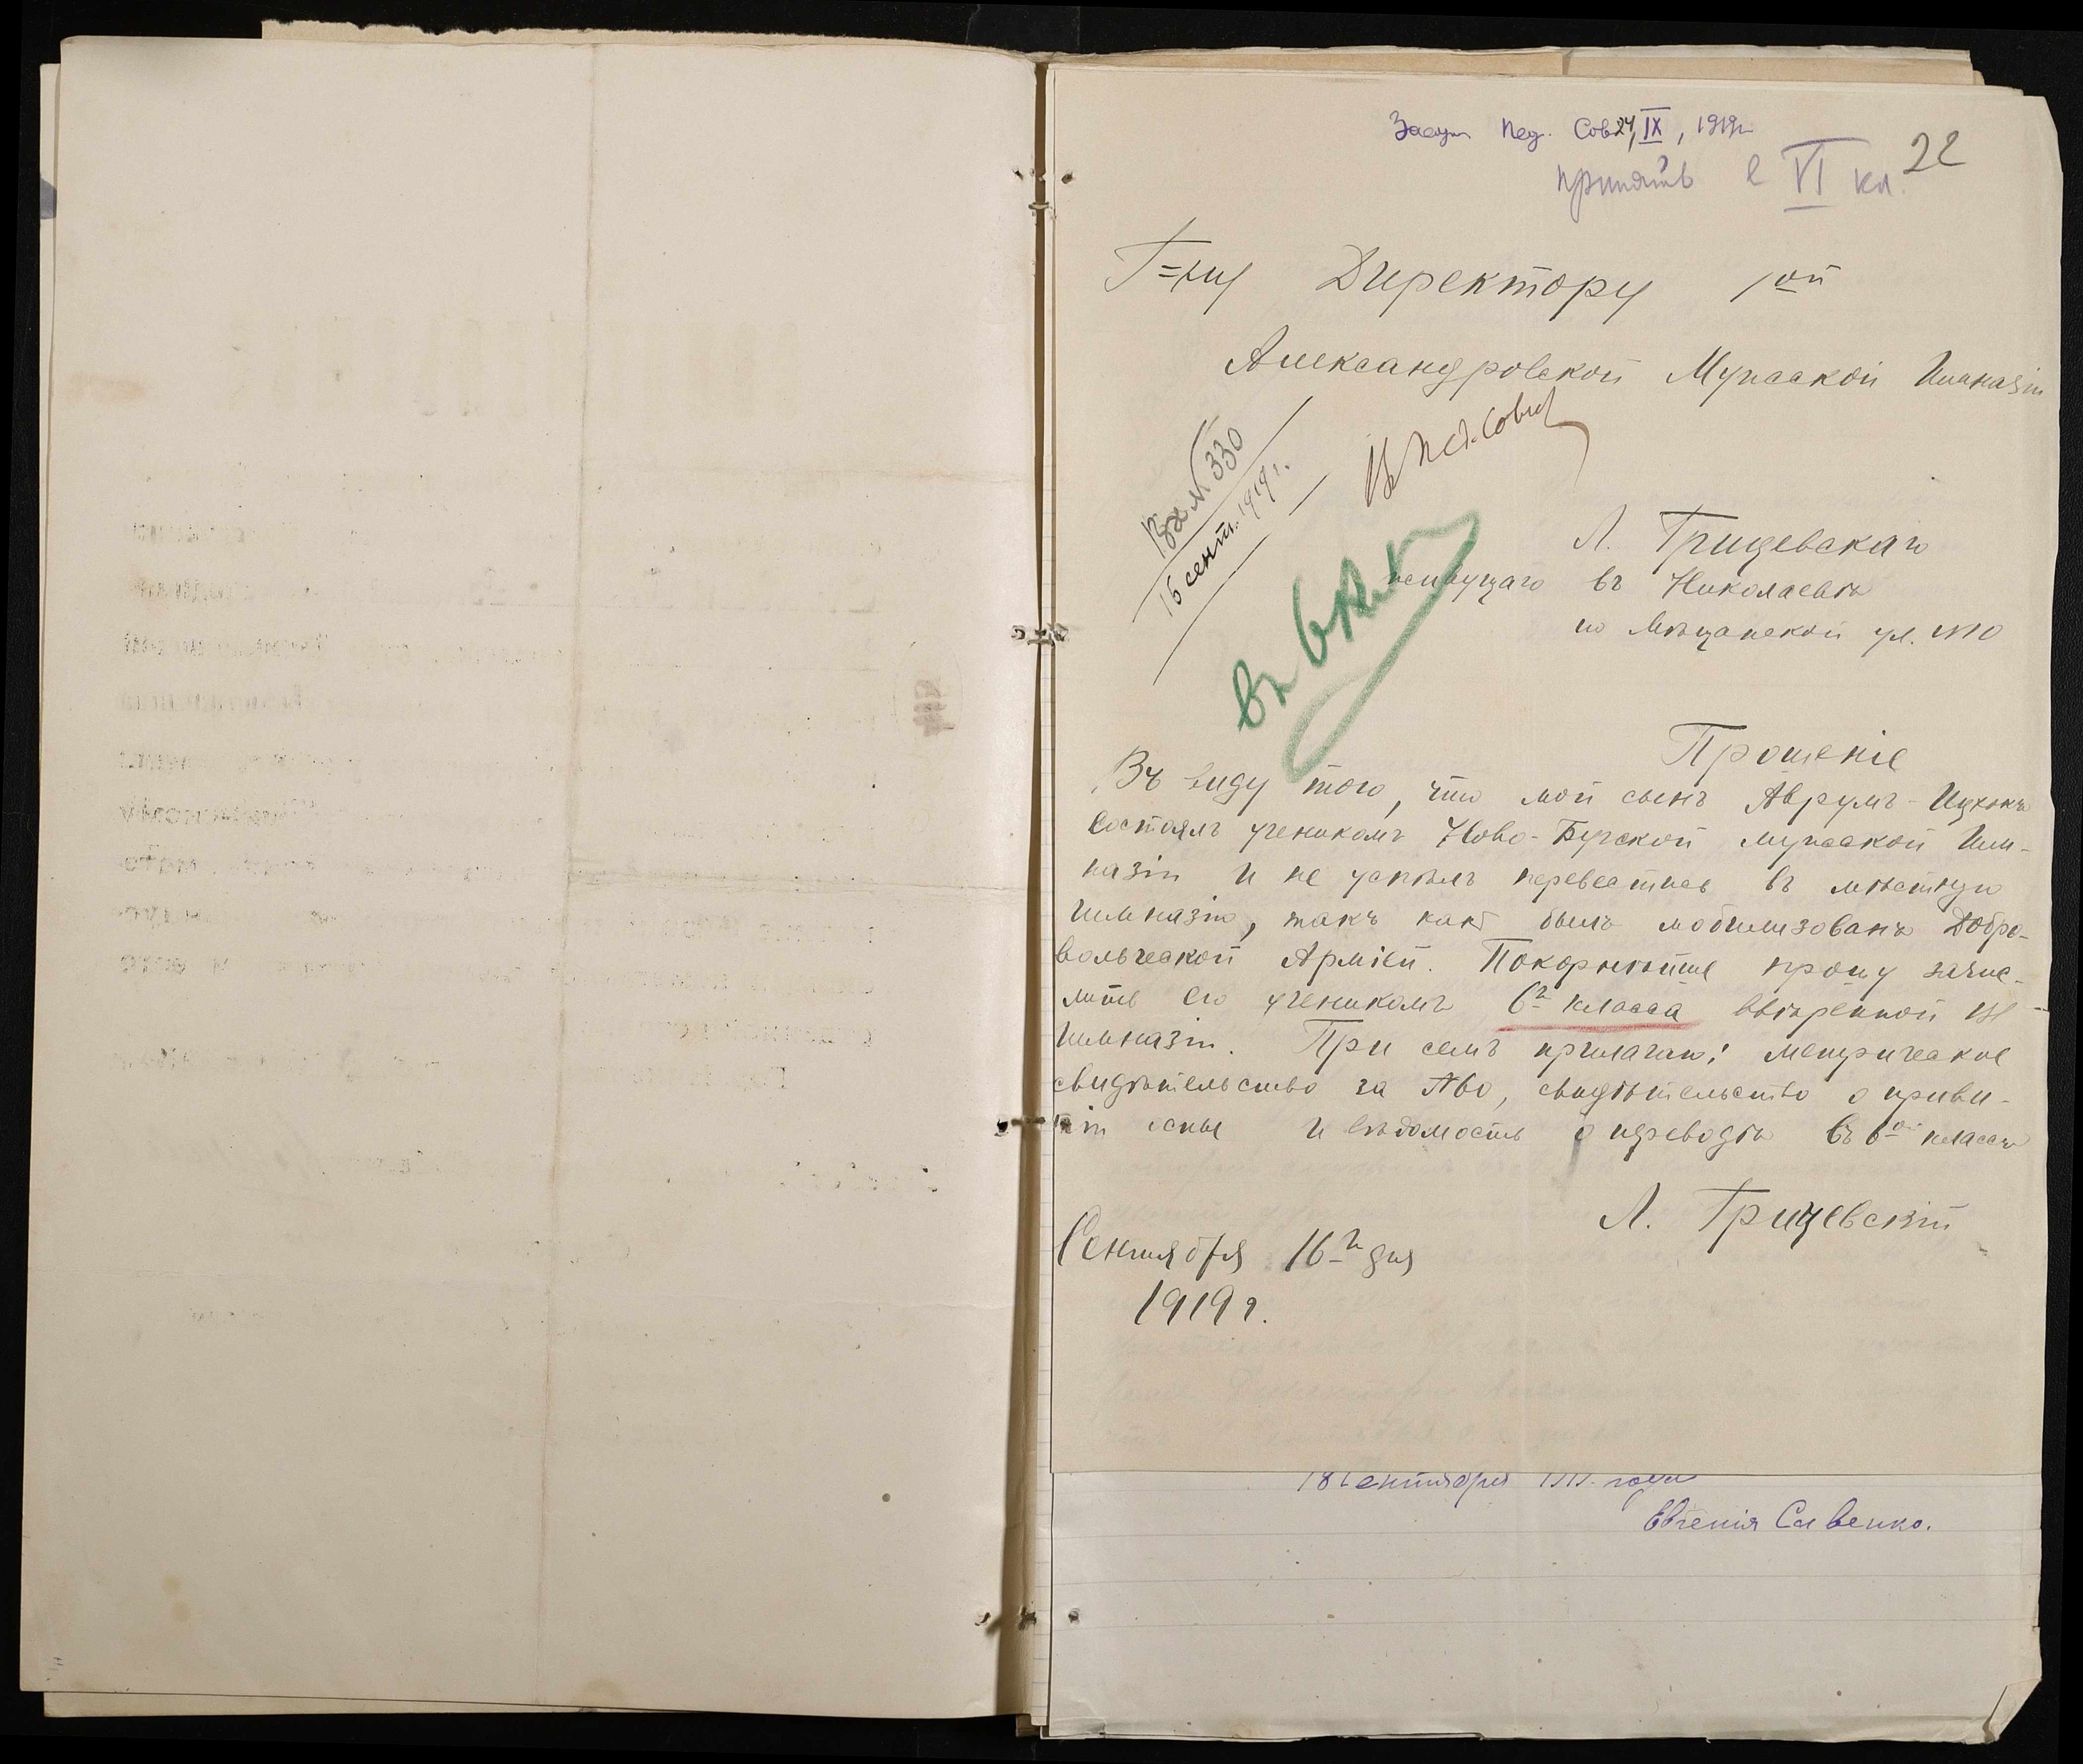 Засѣд. Пед. Сов. 24, IX, 1919 г.
принять в VI кл.
22
Г=ну Директору 1ой
Александровской Мужской Гимназіи
Вх. № 330
16 сент. 1919 г.
Въ Пед. Совѣт
въ 6 кл.
Л. Грицевскаго
живущаго въ Николаевѣ
по Мѣщанской ул. №10
Прошеніе
Въ виду того, что мой сынъ Аврумъ-Ицхокъ
состоялъ ученикомъ Ново-Бугской мужской Гим-
назіи и не успѣлъ перевестись въ мѣстную
гимназію, такъ какъ былъ мобилизованъ Добро-
вольческой Арміей. Покорнѣйше прошу зачис-
лить его ученикомъ 6го класса ввѣренной Вамъ
Гимназіи. При семъ прилагаю: метрическое
свидѣтельство за №, свидѣтельство о приви-
тіи оспы и вѣдомость о переводѣ въ 6ой классъ
Л. Грицевскій
Сентября 16го дня
1919 г.
18 Сентября 1919 года
Евгенія Савенко.